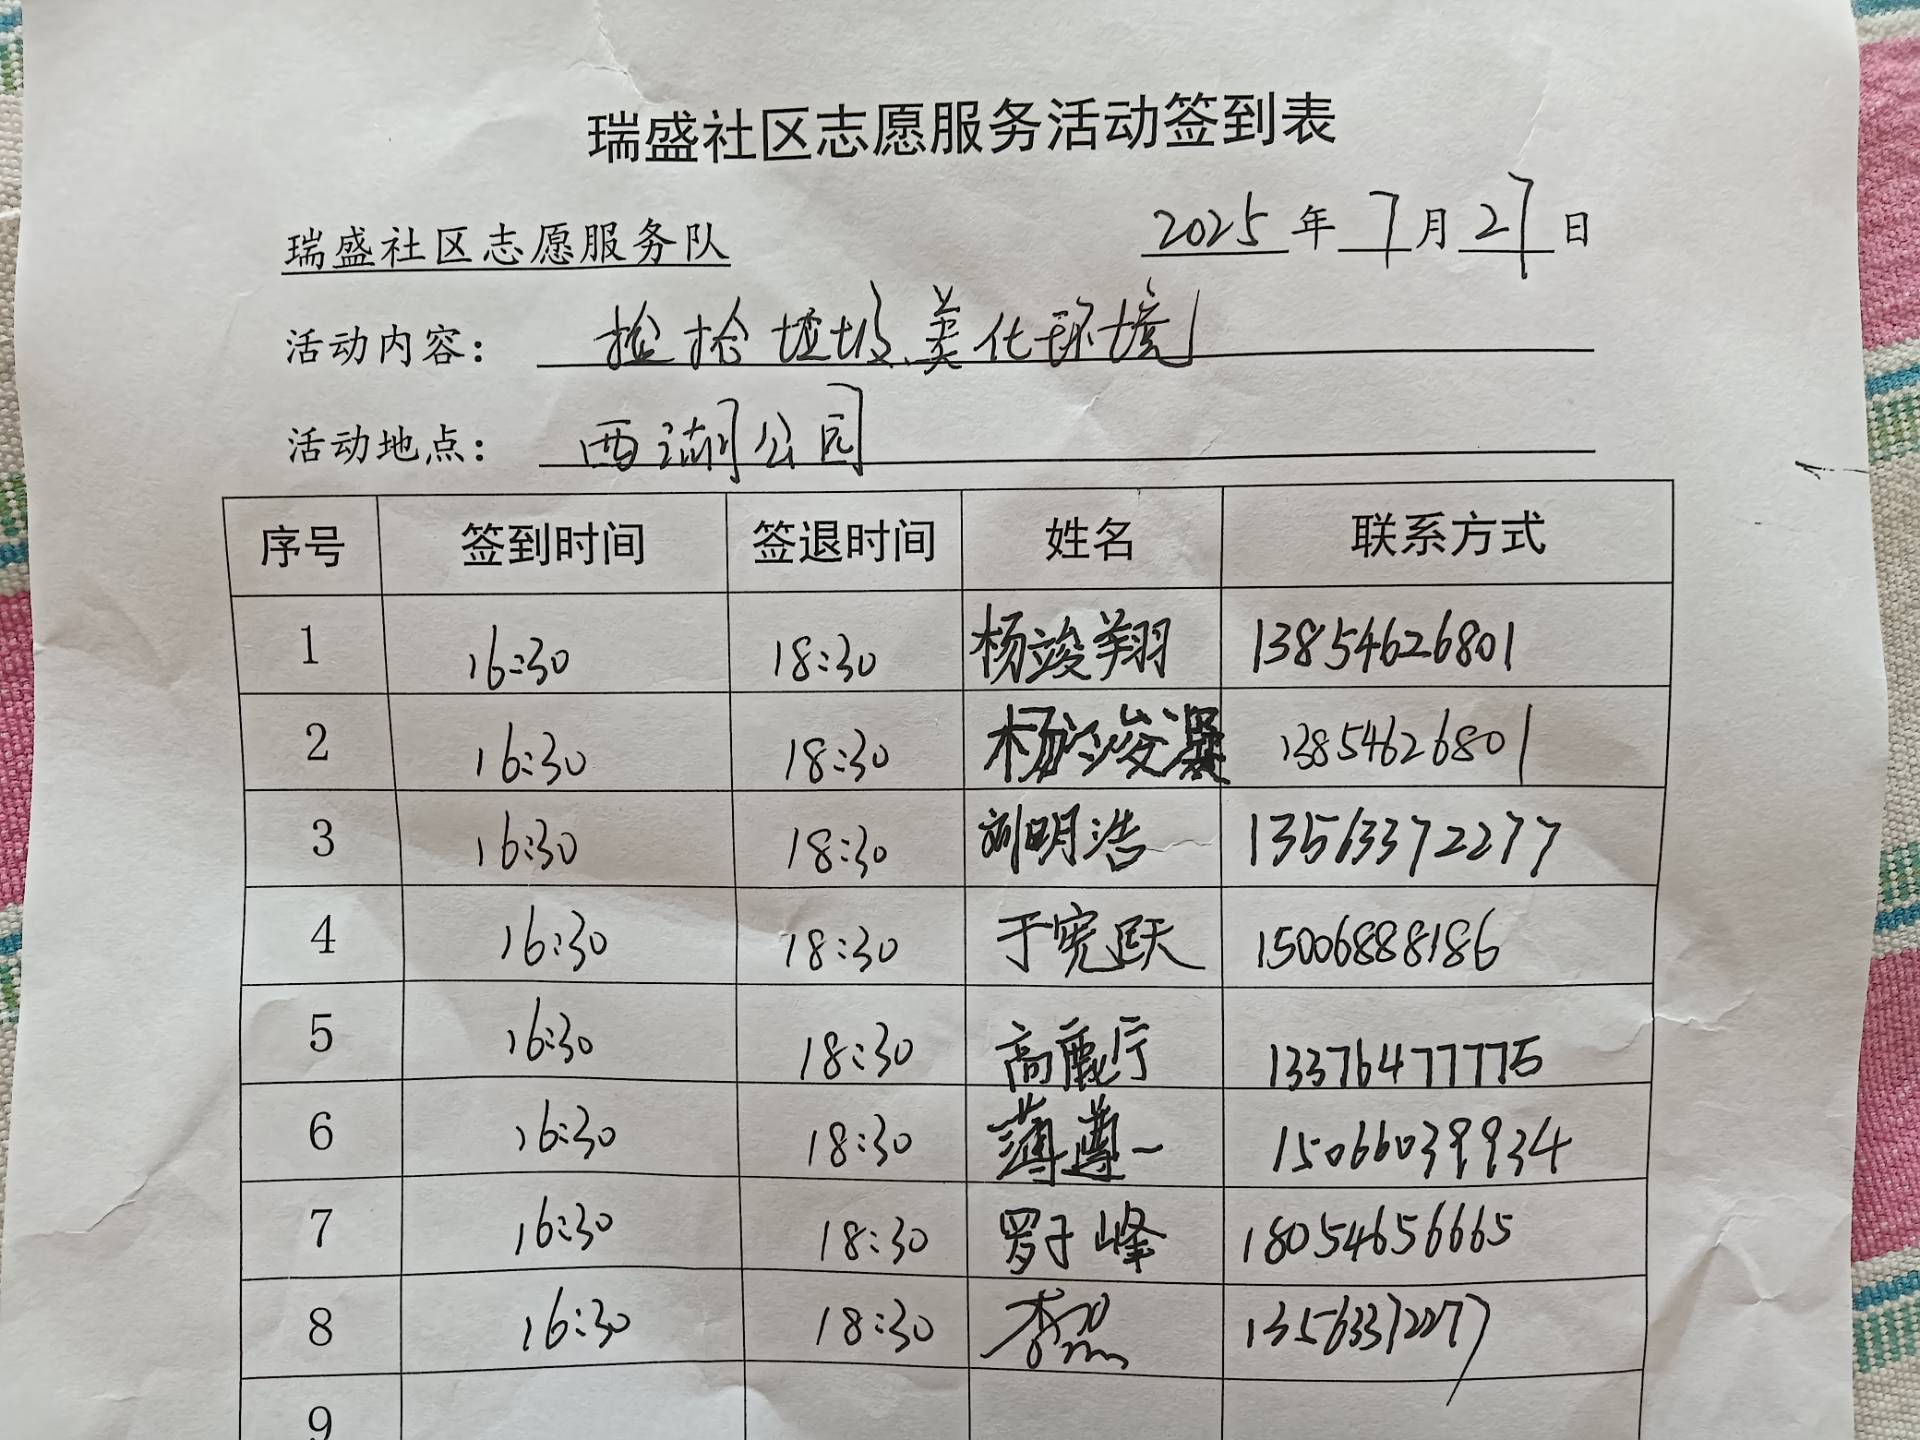 瑞盛社区志愿服务活动签到表
瑞盛社区志愿服务队 2025 年 7 月 27 日
活动内容： 捡拾垃圾、美化环境
活动地点： 西湖公园
序号 签到时间 签退时间 姓名 联系方式
1 16:30 18:30 杨竣翔 13854626801
2 16:30 18:30 杨浚灏 13854626801
3 16:30 18:30 刘明浩 13563372277
4 16:30 18:30 于宪跃 15006888186
5 16:30 18:30 高 13376477775
6 16:30 18:30 薄尊一 15066039934
7 16:30 18:30 罗子峰 18054656665
8 16:30 18:30 李 13563372277
9